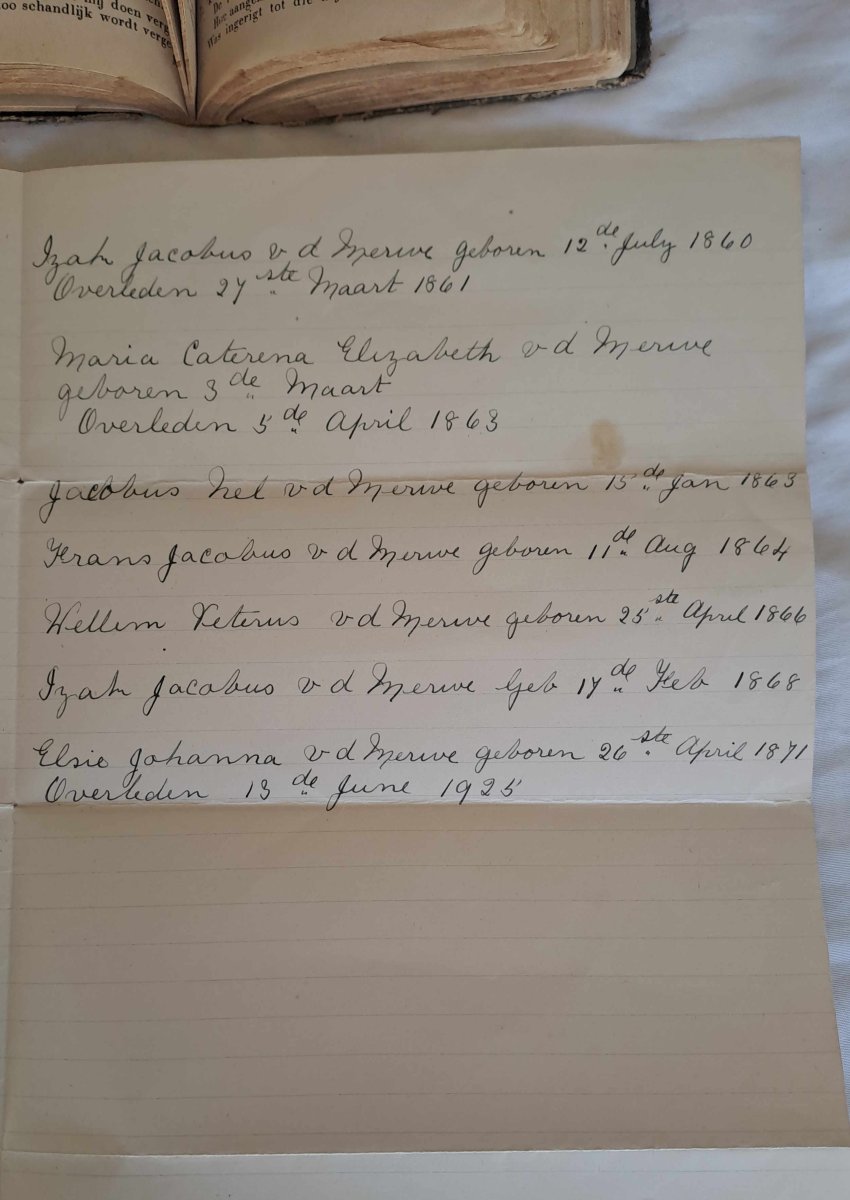 mij doen verg
zoo schandlijk wordt verge
De
Hoe aange
Was ingerigt tot die
Izak Jacobus v d Merwe geboren 12de July 1860
Overleden 27ste Maart 1861
Maria Caterena Elizabeth v d Merwe
geboren 3de Maart
Overleden 5de April 1863
Jacobus Nel v d Merwe geboren 15de Jan 1863
Frans Jacobus v d Merwe geboren 11de Aug 1864
Wellem Peterus v d Merwe geboren 25ste April 1866
Izak Jacobus v d Merwe Geb 17de Feb 1868
Elsie Johanna v d Merwe geboren 26ste April 1871
Overleden 13de June 1925